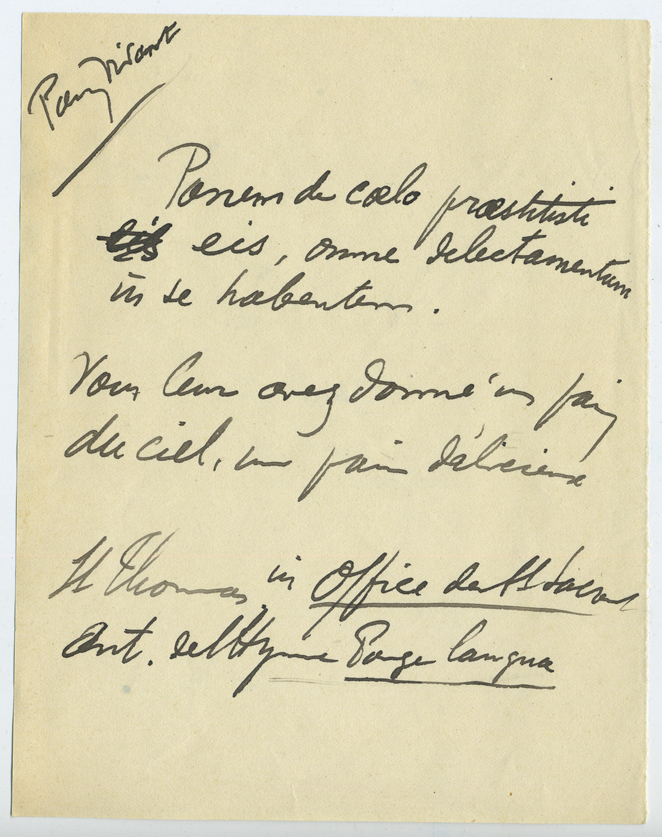 Pain Vivant
Panem de cœlo præstitisti
eis, omne delectamentum
in se habentem.
Vous leur avez donné un pain
du ciel, un pain délicieux
St Thomas, in Office du St Sacrement
Ant. de l'Hymne Pange lingua